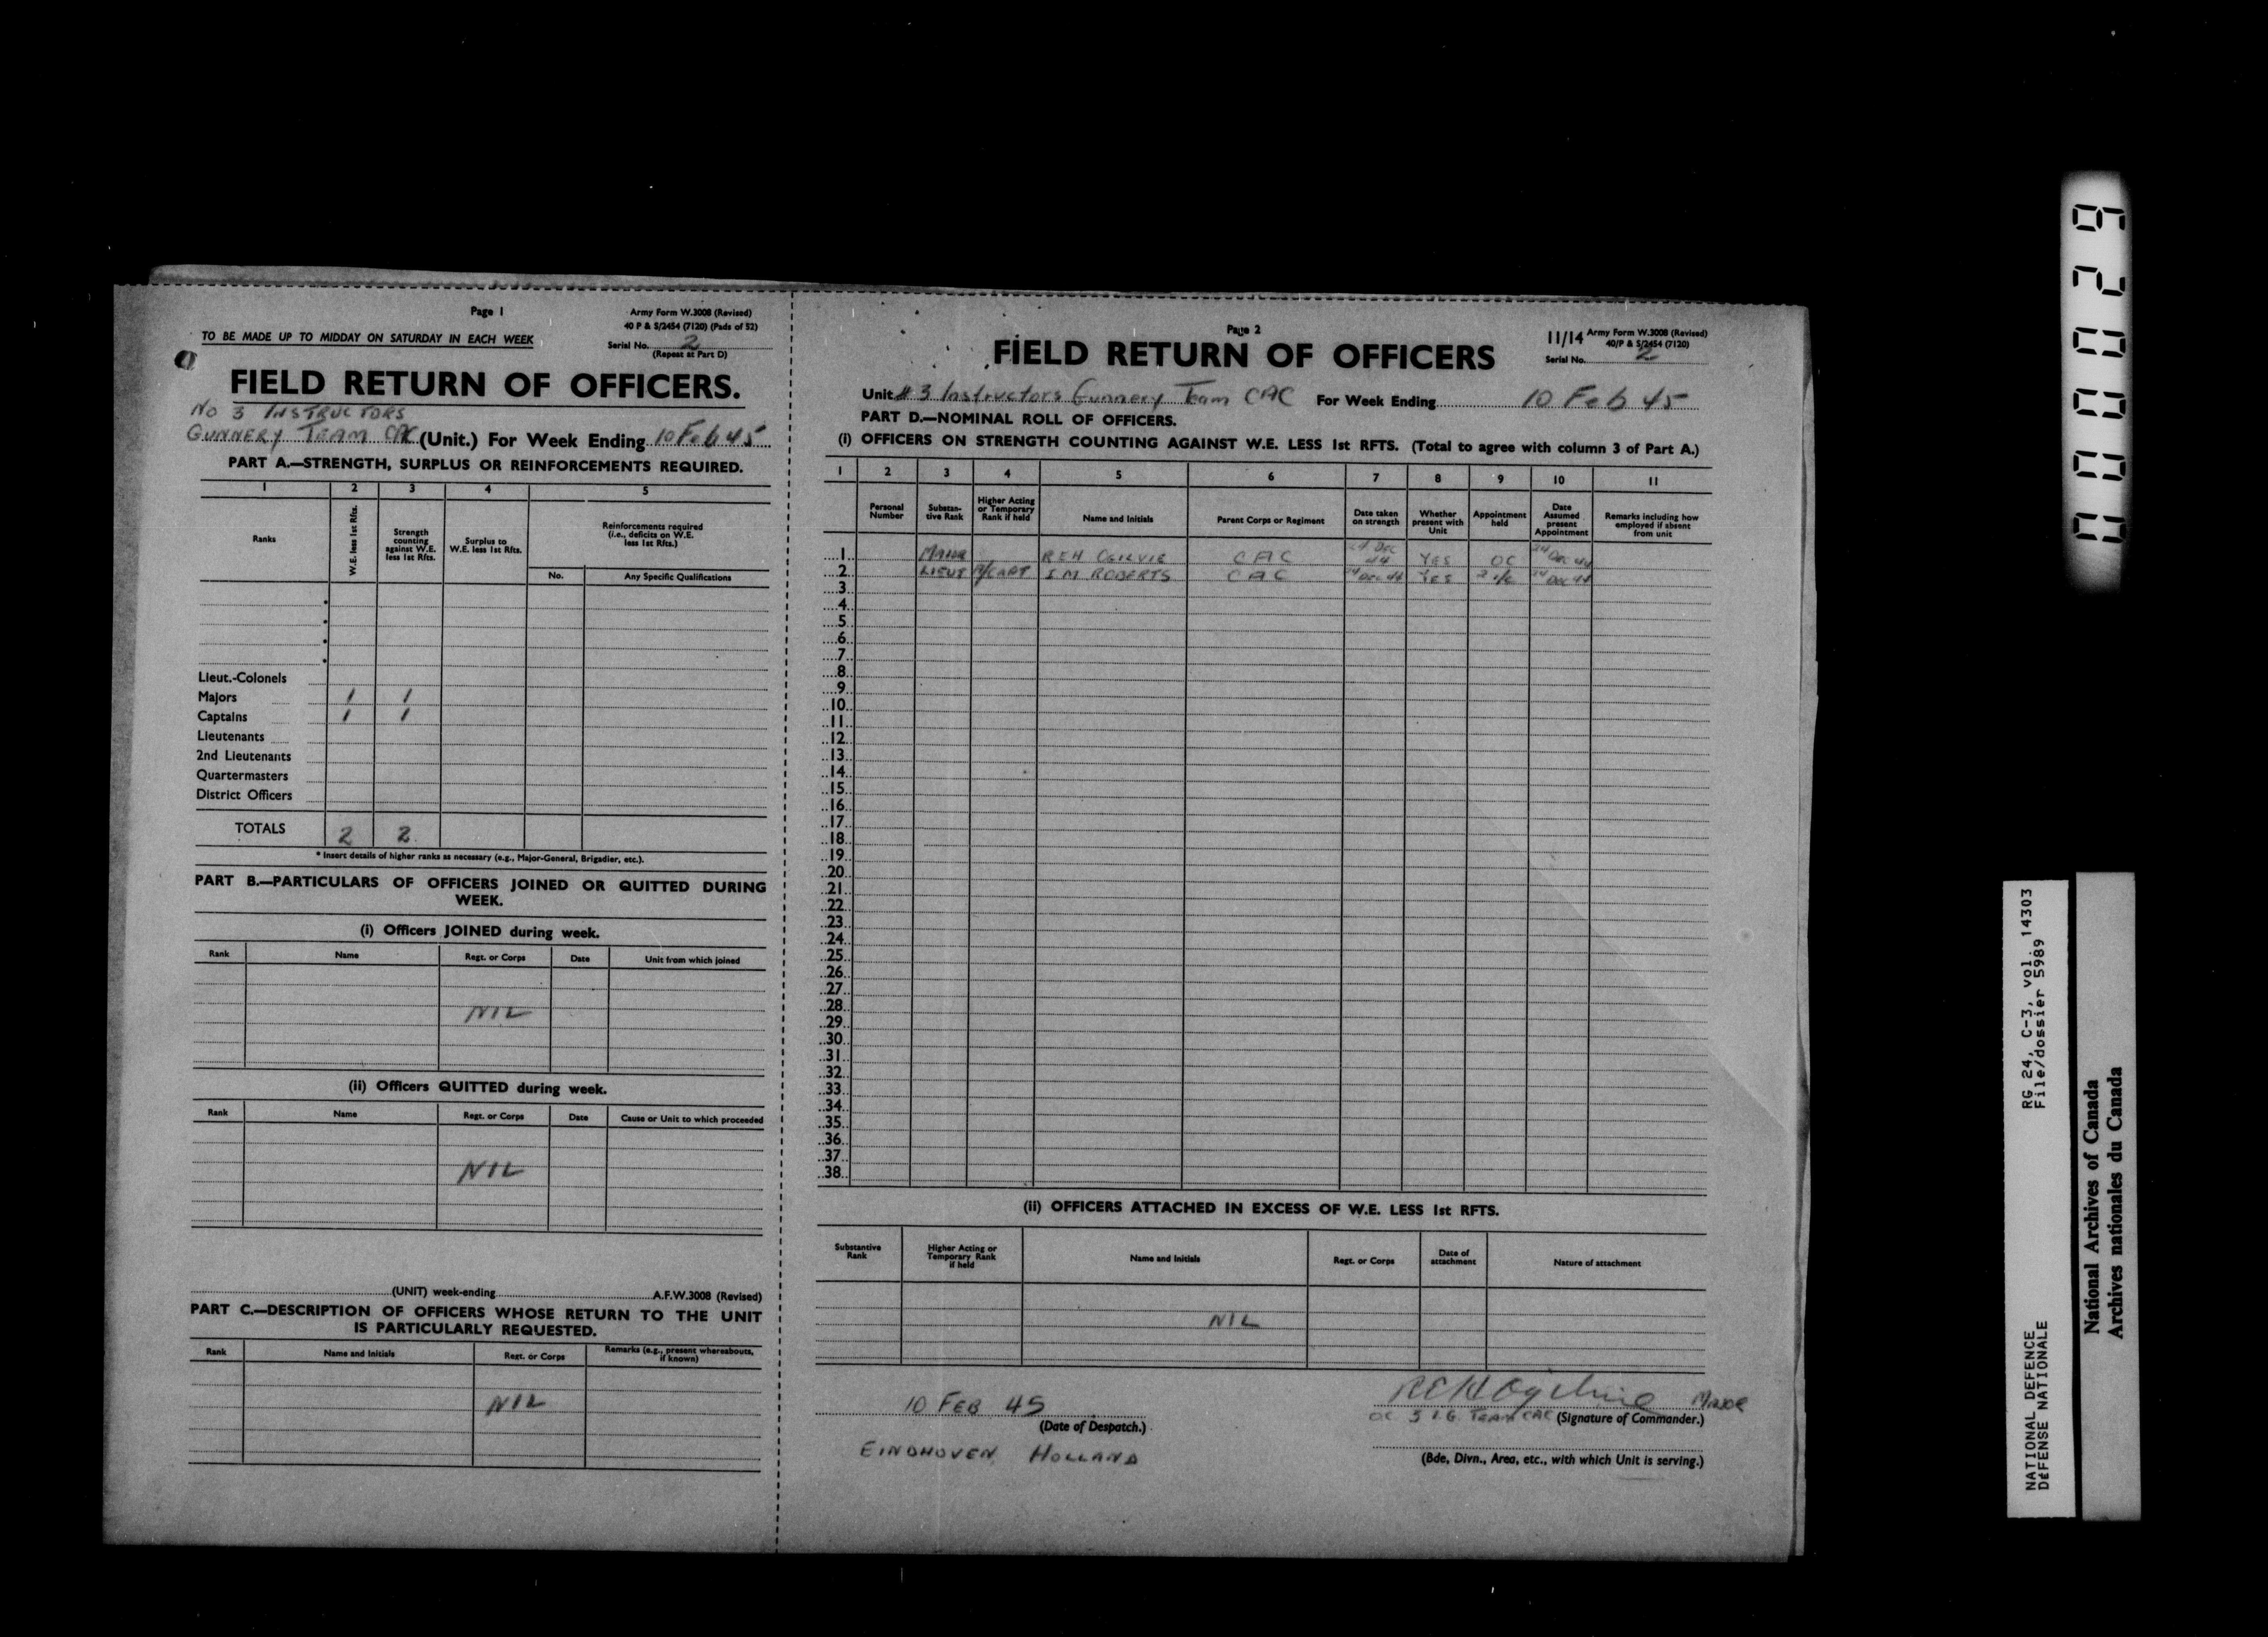 Page 1
Army Form W.3008 (Revised)
40 P & S/2454 (7120) (Pads of 52)
TO BE MADE UP TO MIDDAY ON SATURDAY IN EACH WEEK
Serial No. 2
(Repeat at Part D)
FIELD RETURN OF OFFICERS.
No 3 INSTRUCTORS
GUNNERY TEAM CAC (Unit.) For Week Ending 10 Feb 45
PART A.—STRENGTH, SURPLUS OR REINFORCEMENTS REQUIRED.
1 2 3 4 5
Ranks
W.E. less 1st Rfts.
Strength counting against W.E. less 1st Rfts.
Surplus to W.E. less 1st Rfts.
Reinforcements required (i.e., deficits on W.E. less 1st Rfts.)
No. Any Specific Qualifications
Lieut.-Colonels
Majors 1 1
Captains 1 1
Lieutenants
2nd Lieutenants
Quartermasters
District Officers
TOTALS 2 2
* Insert details of higher ranks as necessary (e.g., Major-General, Brigadier, etc.).
PART B.—PARTICULARS OF OFFICERS JOINED OR QUITTED DURING
WEEK.
(i) Officers JOINED during week.
Rank Name Regt. or Corps Date Unit from which joined
NIL
(ii) Officers QUITTED during week.
Rank Name Regt. or Corps Date Cause or Unit to which proceeded
NIL
(UNIT) week-ending A.F.W.3008 (Revised)
PART C.—DESCRIPTION OF OFFICERS WHOSE RETURN TO THE UNIT
IS PARTICULARLY REQUESTED.
Rank Name and Initials Regt. or Corps Remarks (e.g., present whereabouts, if known)
NIL
Page 2
11/14 Army Form W.3008 (Revised)
40/P & S/2454 (7120)
Serial No. 2
FIELD RETURN OF OFFICERS
Unit # 3 Instructors Gunnery Team CAC For Week Ending 10 Feb 45
PART D.—NOMINAL ROLL OF OFFICERS.
(i) OFFICERS ON STRENGTH COUNTING AGAINST W.E. LESS 1st RFTS. (Total to agree with column 3 of Part A.)
1 2 3 4 5 6 7 8 9 10 11
Personal Number
Substantive Rank
Higher Acting or Temporary Rank if held
Name and Initials
Parent Corps or Regiment
Date taken on strength
Whether present with Unit
Appointment held
Date Assumed present Appointment
Remarks including how employed if absent from unit
1 MAJOR REH OGILVIE CAC 24 Dec 44 YES OC 24 Dec 44
2 LIEUT A/CAPT I M ROBERTS CAC 24 Dec 44 YES 2 i/c 24 Dec 44
3
4
5
6
7
8
9
10
11
12
13
14
15
16
17
18
19
20
21
22
23
24
25
26
27
28
29
30
31
32
33
34
35
36
37
38
(ii) OFFICERS ATTACHED IN EXCESS OF W.E. LESS 1st RFTS.
Substantive Rank
Higher Acting or Temporary Rank if held
Name and Initials
Regt. or Corps
Date of attachment
Nature of attachment
NIL
10 FEB 45
(Date of Despatch.)
EINDHOVEN HOLLAND
REH Ogilvie MAJOR
OC 3 I.G. TEAM CAC (Signature of Commander.)
(Bde, Divn., Area, etc., with which Unit is serving.)
000029
RG 24, C-3, vol. 14303
File/dossier 5989
NATIONAL DEFENCE
DÉFENSE NATIONALE
National Archives of Canada
Archives nationales du Canada